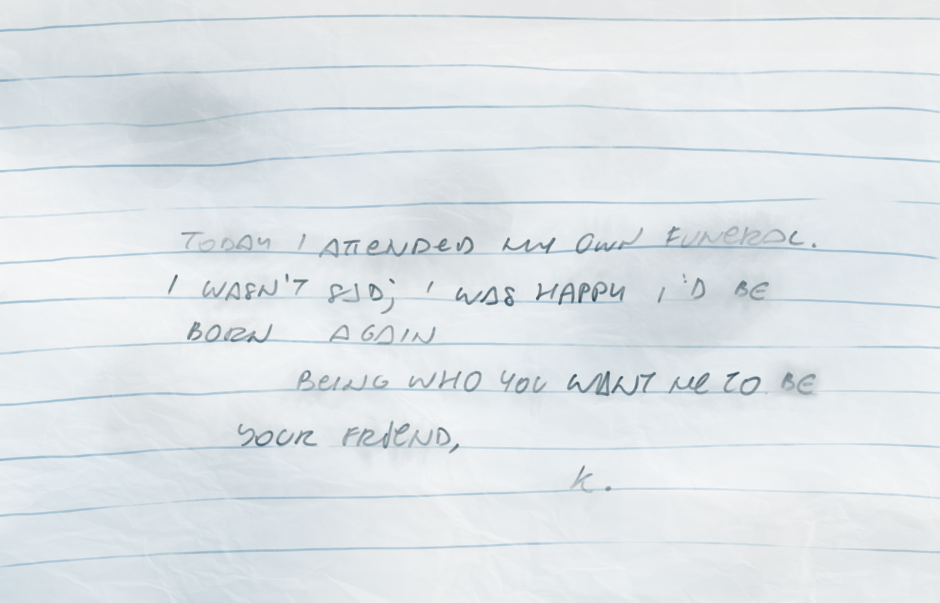 TODAY I ATTENDED MY OWN FUNERAL.
I WASN'T SAD; I WAS HAPPY I'D BE
BORN AGAIN
BEING WHO YOU WANT ME TO BE
YOUR FRIEND,
K.